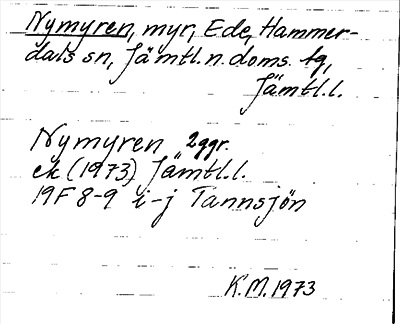 Nymyren, myr, Ede, Hammer-
dals sn, Jämtl. n. doms. tg,
Jämtl.l.
Nymyren 2ggr.
ek (1973) Jämtl.l.
19F 8-9 i-j Tannsjön
K.M. 1973